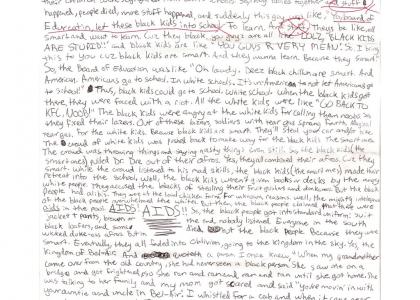 happened, people died, more stuff happened, and suddenly this guy was like, "Yo board of
Education, let these black kids into school. To learn. They be like
smart and want to learn cuz they black. you guys are all like LOLZ, BLACK KIDS
ARE STUPID!" and black kids are like "YOU GUYS R VERY MEAN! So, I bring
this to you cuz black kids are smart. And they wanna learn. Because they smart."
So, the board of Education was like. "Oh lawdy. Deez black chillun are smart. And
American. Americans go to school. In white schools. It's not to not let Americans go
to school!" Thus, black kids could go to school. White school. When the black kids got
there, they were faced with a riot. All the white kids were like "GO BACK TO
KFC, NOOBS!" The black kids were angry at the white kids for calling them noobs so
they fired their lazors. Out of these lazors,
tear gas. For the white kids. Because black kids are smart. They'll steal your car and/or bike.
The crowd of white kids was forced back to make way for the black kids. The smart ones.
The crowd was throwing things and saying nasty things. Even still. So the black kids (the
smart ones) pulled Dr. Dre out of their afros. Yes, they all combed their afros. Cuz they
smart. While the crowd listened in his mad skillz, the black kids (the smart ones) made their
retreat into the school. Well, the black kids weren't given books or desks by the mean
white people. They accused the blacks of stealing their fruit
people had aids.
of the black people overwhelmed the whites. But then, the black people claimed that there were
aids in the pool. AIDS! AIDS!! So, the black people got
jacket & pants, brown or
black loafers, and some
wicked duke-ass afros. But in
the end, nobody listened. Everyone in the south
died, not the black people. Because they were
smart. Eventually, they all faded into Oblivion, going to the kingdom in the sky. Yes, the
Kingdom of Bel-Air. And a person I once knew, "When my grandmother
came over from the old country, she had never seen a black person. She saw one on a
bridge and got frightned, so she ran and ran and ran and ran until she got home. She
was talking to her family and my mom got scared and said "you're movin' in with
your auntie and uncle in Bel-Air." I whistled for a cab and when it came near